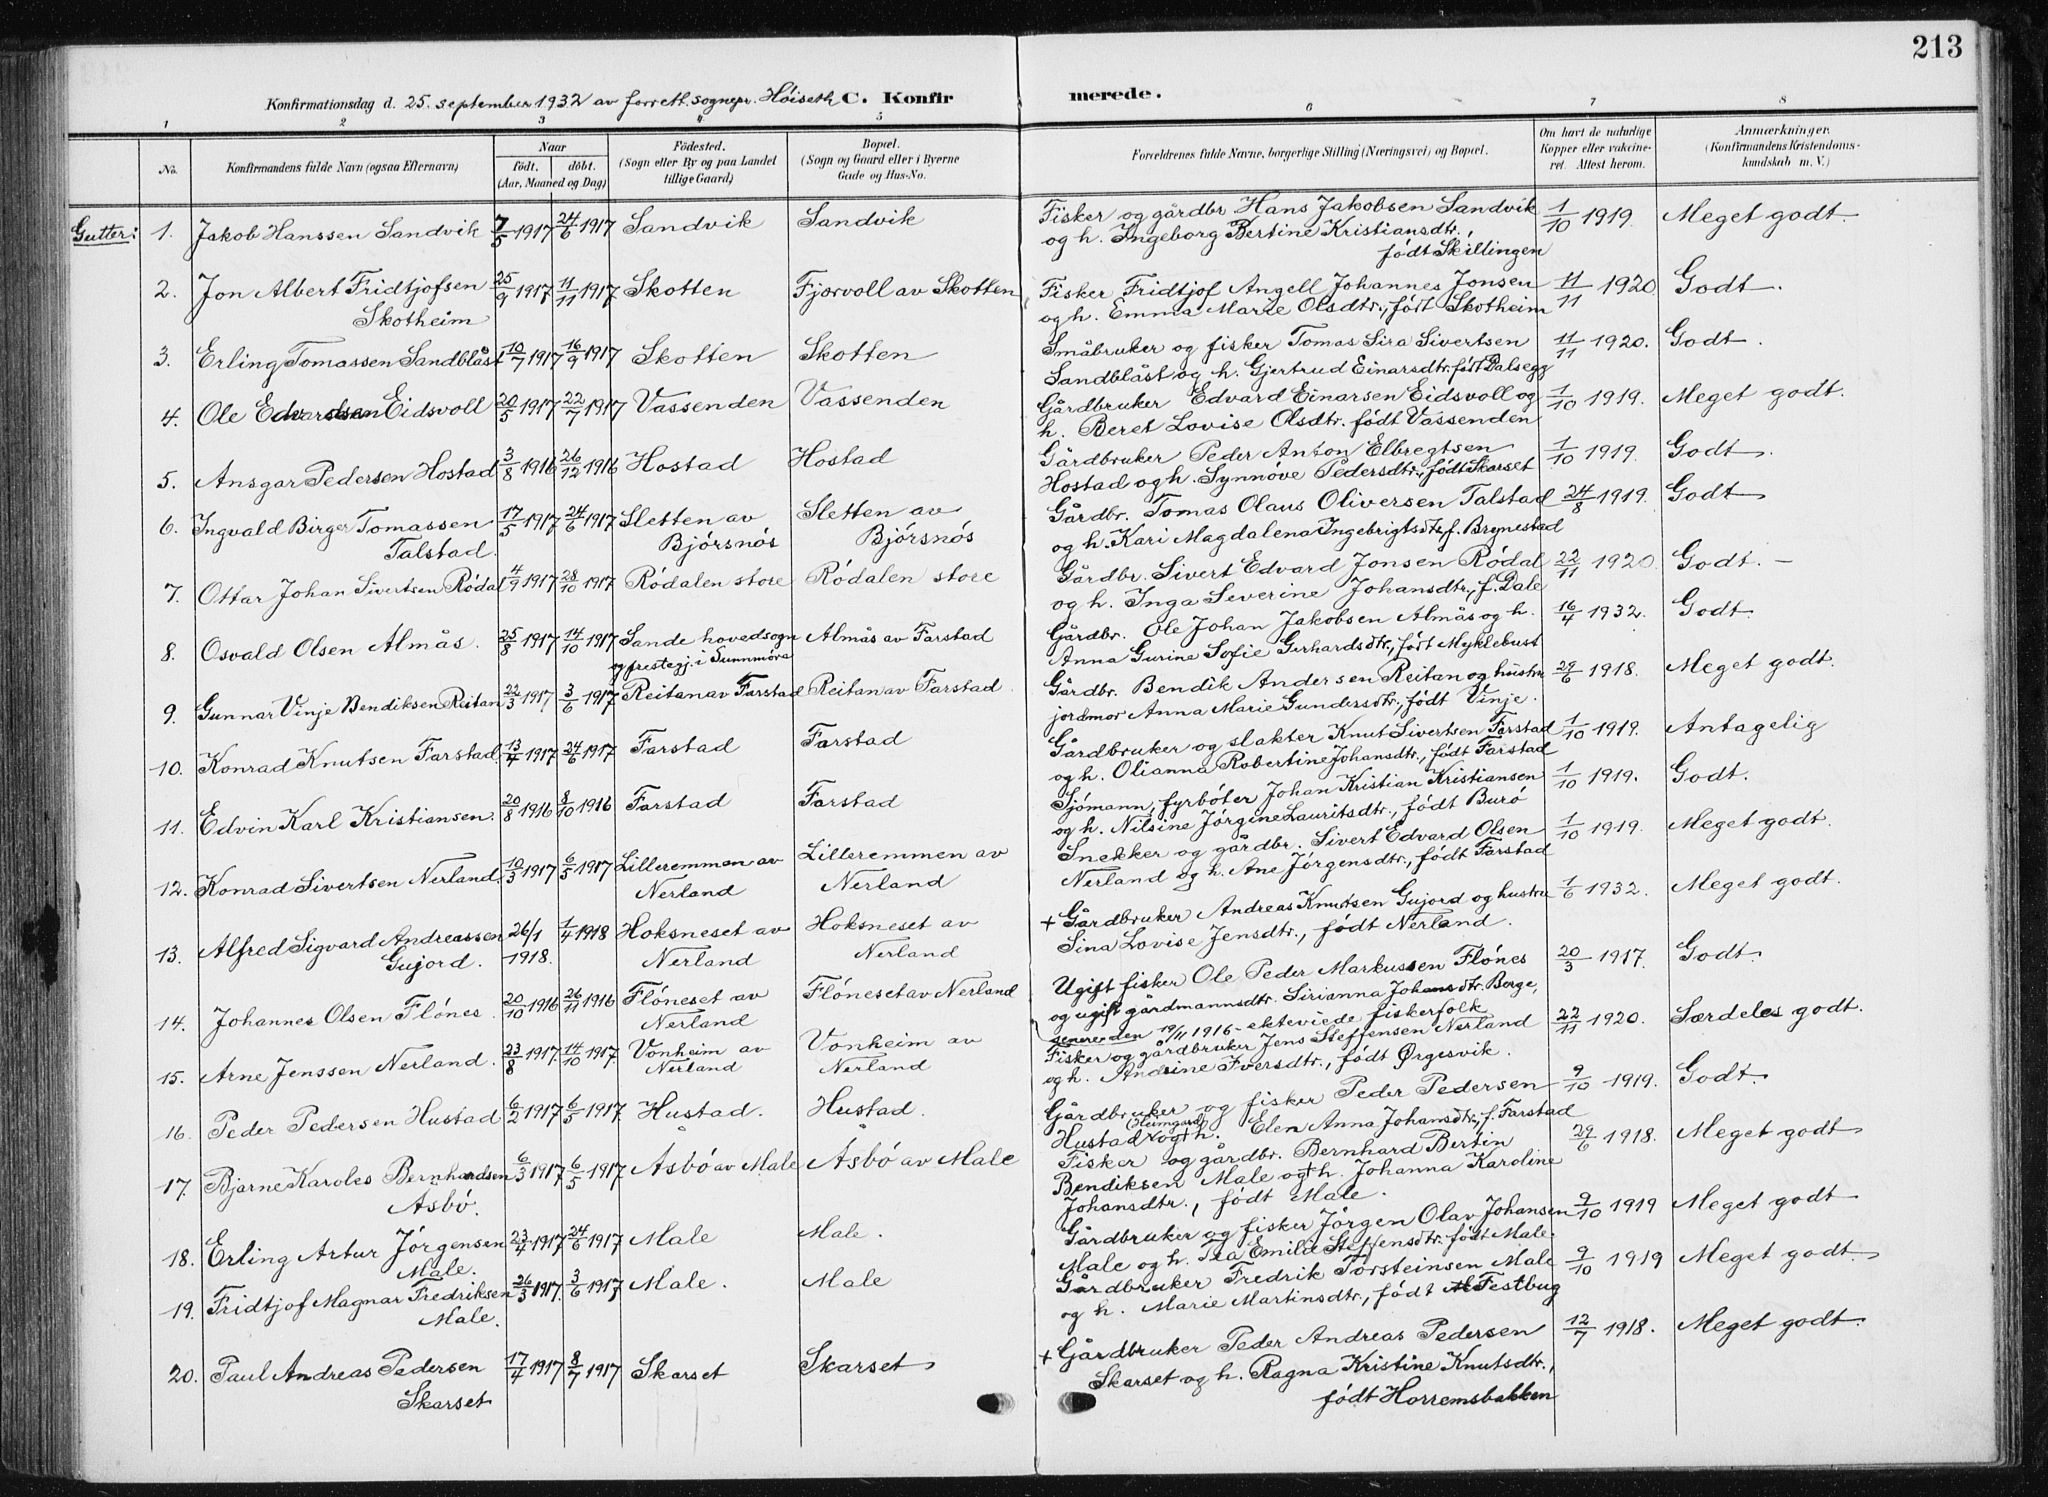 213
Konfirmationsdag d. 25. september 1932 av forrett. sognepr. Höiseth C. Konfirmerede.
1 2 3 4 5 6 7 8
No. Konfirmandens fulde Navn (ogsaa Efternavn) Naar født. døbt. (Aar, Maaned og Dag) Fødested. (Sogn eller By og paa Landet tillige Gaard) Bopæl. (Sogn og Gaard eller i Byerne Gade og Hus-No. Forældrenes fulde Navne, borgerlige Stilling (Næringsvei) og Bopæl. Om havt de naturlige Kopper eller vakcineret. Attest herom. Anmærkninger. (Konfirmandens Kristendomskundskab m. V.)
Gutter: 1. Jakob Hanssen Sandvik 7/5 1917 24/6 1917 Sandvik Sandvik Fisker og gårdbr Hans Jakobsen Sandvik 1/10 1919. Meget godt.
og h. Ingeborg Bertine Kristiansdtr.,
født Skillingen
2. Jon Albert Fridtjofsen 25/9 1917 11/11 1917 Skotten Fjorvoll av Skotten Fisker Fridtjof Angell Johannes Jonsen 11/11 1920 Godt.
Skotheim og h. Emma Marie Olsdtr., født Skotheim
3. Erling Tomassen Sandblåst 10/7 1917 16/9 1917 Skotten Skotten Småbruker og fisker Tomas Sira Sivertsen 11/11 1920. Godt.
Sandblåst og h. Gjertrud Einarsdtr. født Dalsegg
4. Ole Edvardsen Eidsvoll 20/5 1917 22/7 1917 Vassenden Vassenden Gårdbruker Edvard Einarsen Eidsvoll og 1/10 1919. Meget godt.
h. Beret Lovise Olsdtr. født Vassenden
5. Ansgar Pedersen Hostad 3/8 1916 26/12 1916 Hostad Hostad Gårdbruker Peder Anton Elbregtsen 1/10 1919. Godt.
Hostad og h. Synnöve Pedersdtr., født Skarset
6. Ingvald Birger Tomassen 17/5 1917 24/6 1917 Sletten av Sletten av Gårdbr. Tomas Olaus Oliversen Talstad 24/8 1919. Godt
Talstad. Björsnös Björsnös og h. Kari Magdalena Ingebrigtsdtr, f. Brynestad
7. Ottar Johan Sivertsen Ródal 4/9 1917 28/10 1917 Ródalen store Ródalen store Gårdbr. Sivert Edvard Jonsen Ródal 22/11 1920 Godt.-
og h. Inga Severine Johansdtr., f. Dale
8. Osvald Olsen Almås. 25/8 1917 14/10 1917 Sande hovedsogn Almås av Farstad Gårdbr. Ole Johan Jakobsen Almås og h. 16/4 1932. Godt.
og prestegj. i Sunnmöre Anna Gurine Sofie Gerhardsdtr., født Myklebust
9. Gunnar Vinje Bendiksen Reitan 22/3 1917 3/6 1917 Reitan av Farstad Reitan av Farstad Gårdbr. Bendik Andersen Reitan og hustru 29/6 1918. Meget godt.
jordmor Anna Marie Gundersdtr., født Vinje.
10. Konrad Knutsen Farstad. 13/4 1917 24/6 1917 Farstad Farstad Gårdbruker og slakter Knut Sivertsen Farstad 1/10 1919. Antagelig
og h. Olianna Robertine Johansdtr., født Farstad
11. Edvin Karl Kristiansen. 20/8 1916 8/10 1916 Farstad Farstad Sjómann, fyrbóter Johan Kristian Kristiansen 1/10 1919. Godt.
og h. Nilsine Jórgine Lauritsdtr., født Buró
12. Konrad Sivertsen Nerland. 10/3 1917 6/5 1917 Lilleremmen av Lilleremmen av Snekker og gårdbr. Sivert Edvard Olsen 1/10 1919. Meget godt.
Nerland Nerland Nerland og h. Ane Jórgensdtr., født Farstad
13. Alfred Sigvard Andreassen 26/1 1918. 1/4 1918 Hoksneset av Hoksneset av + Gårdbruker Andreas Knutsen Gujord og hustru 1/6 1932. Meget godt.
Gujord. Nerland Nerland Sina Lovise Jensdtr., født Nerland.
14. Johannes Olsen Flónes. 20/10 1916 26/11 1916 Flóneset av Flóneset av Nerland Ugift fisker Ole Peder Markussen Flónes 20/3 1917. Godt.
Nerland og ugift gårdmannsdtr. Sirianna Johansdtr. Berge,
senere den 19/11 1916 - ekteviede fiskerfolk
15. Arne Jenssen Nerland. 23/8 1917 14/10 1917. Vonheim av Vonheim av Fisker og gårdbruker Jens Steffensen Nerland 22/11 1920. Særdeles godt.
Nerland Nerland og h. Andrine Iversdtr., født Ørgesvik.
16. Peder Pedersen Hustad 6/2 1917 6/5 1917. Hustad. Hustad. Gårdbruker og fisker Peder Pedersen 9/10 1919. Godt.
Hustad (Heimgard) og h. Elen Anna Johansdtr., f. Farstad
17. Bjarne Karoles Bernhardsen 6/3 1917 6/5 1917 Åsbó av Male Åsbó av Male Fisker og gårdbr. Bernhard Bertin 29/6 1918. Meget godt
Åsbó. Bendiksen Male og + h. Johanna Karoline
Johansdtr., født Male.
18. Erling Artur Jórgensen 23/4 1917 24/6 1917 Male Male. Gårdbruker og fisker Jórgen Olav Johansen 9/10 1919 Meget godt
Male. Male og h. Tea Emilie Steffensdtr. født Male.
19. Fridtjof Magnar Fredriksen 26/3 1917. 3/6 1917 Male. Male Gårdbruker Fredrik Torsteinsen Male 9/10 1919 Meget godt.
Male. og h. Marie Martinsdtr., født Festbug
20. Paul Andreas Pedersen 17/4 1917 8/7 1917 Skarset Skarset + Gårdbruker Peder Andreas Pedersen 12/7 1918. Meget godt.
Skarset Skarset og h. Ragna Kristine Knutsdtr.,
født Horremsbakken